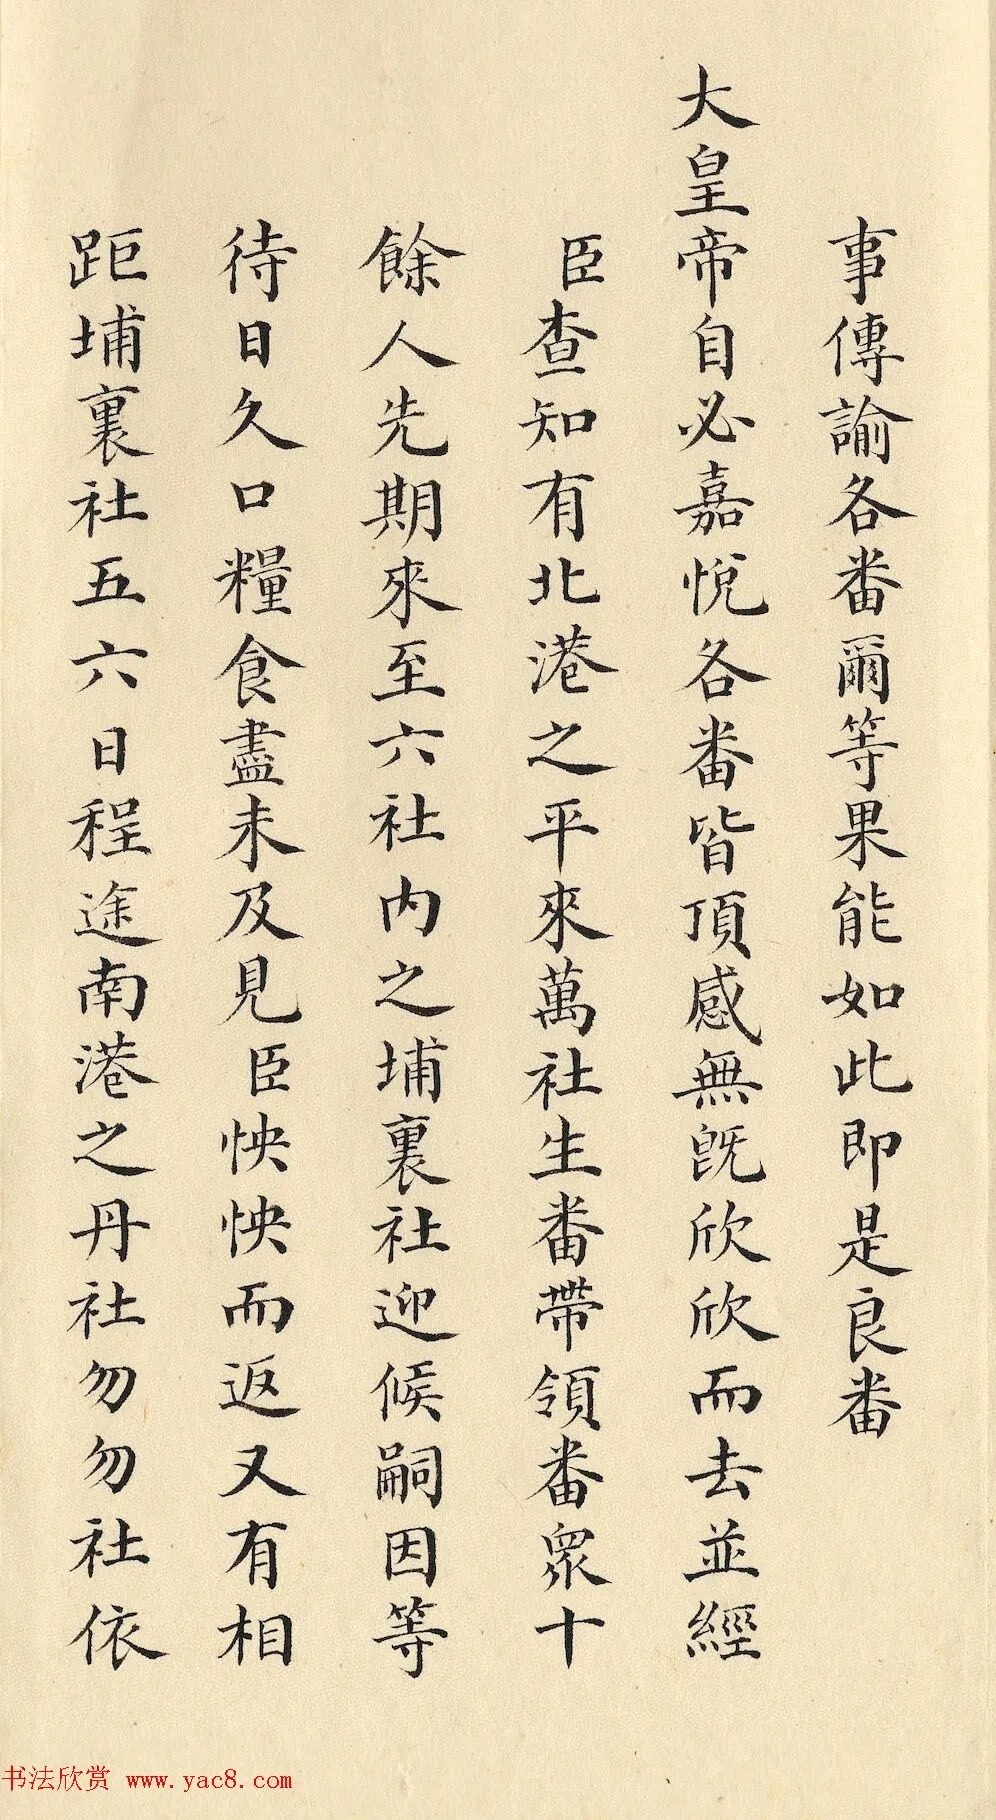 事傳諭各番爾等果能如此即是良番
大皇帝自必嘉悅各番皆頂感無旣欣欣而去並經
臣查知有北港之平來萬社生番帶領番眾十
餘人先期來至六社內之埔裏社迎候嗣因等
待日久口糧食盡未及見臣怏怏而返又有相
距埔裏社五六日程途南港之丹社勿勿社依
书法欣赏 www.yac8.com